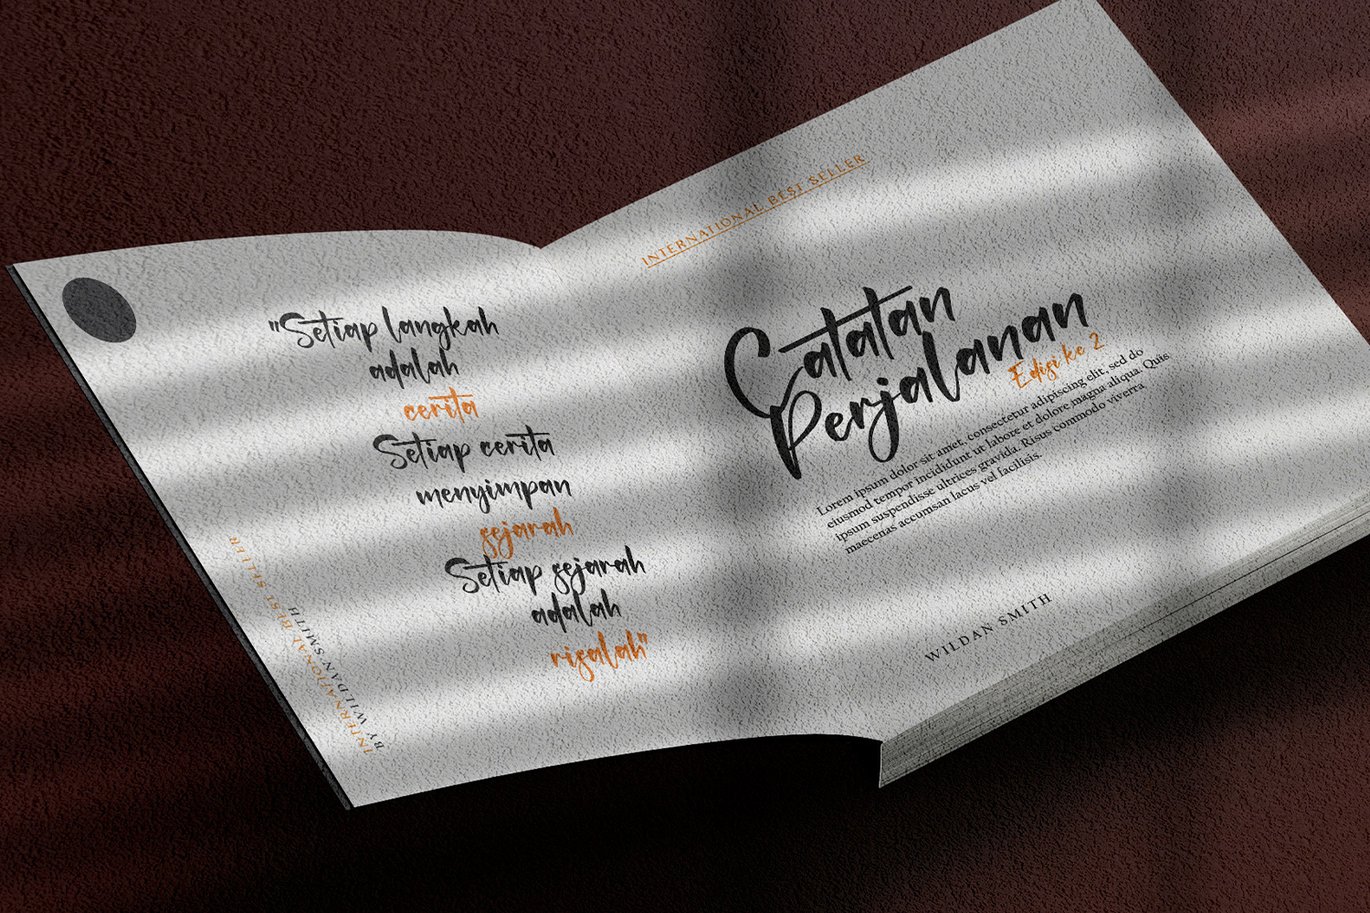 "Setiap langkah
adalah
cerita
Setiap cerita
menyimpan
sejarah
Setiap sejarah
adalah
risalah"
INTERNATIONAL BEST SELLER
BY WILDAN SMITH
INTERNATIONAL BEST SELLER
Catatan
Perjalanan
Edisi ke 2
Lorem ipsum dolor sit amet, consectetur adipiscing elit, sed do
eiusmod tempor incididunt ut labore et dolore magna aliqua. Quis
ipsum suspendisse ultrices gravida. Risus commodo viverra
maecenas accumsan lacus vel facilisis.
WILDAN SMITH